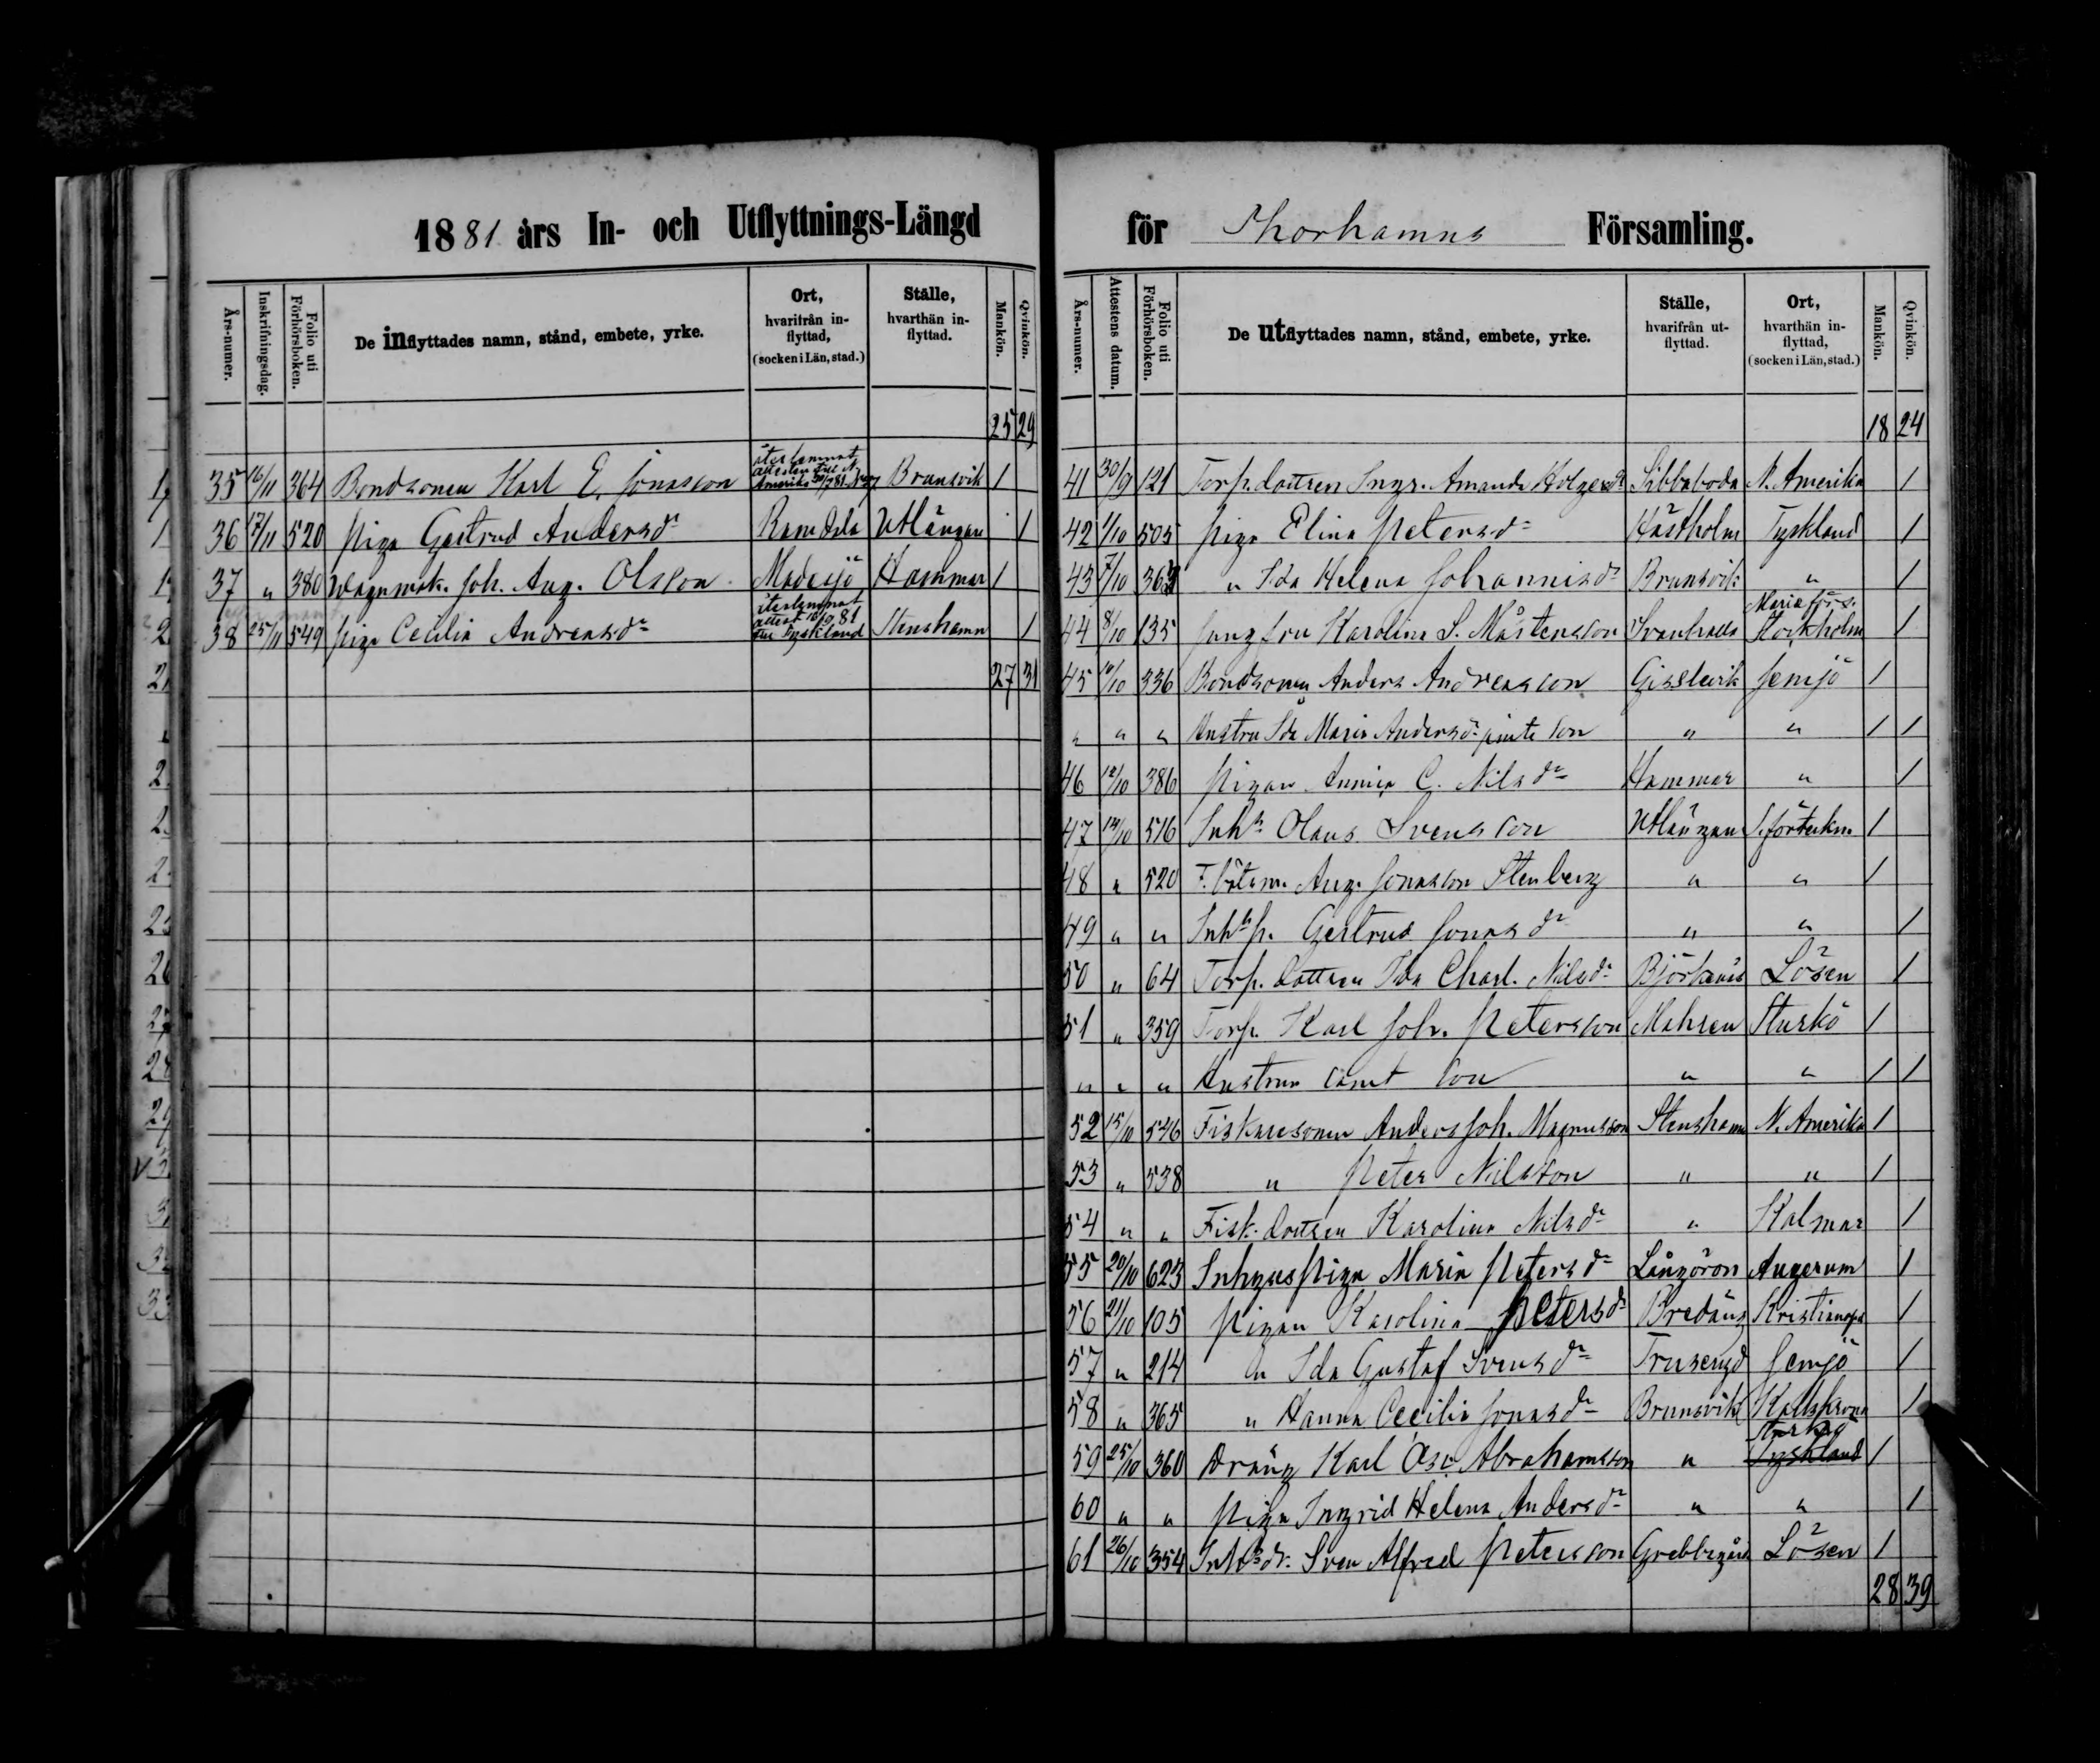 1881 års In- och Utflyttnings-Längd
Års-numer. Inskrifningsdag. Folio uti Förhörsboken. De inflyttades namn, stånd, embete, yrke. Ort, hvarifrån in-flyttad, (socken i Län, stad.) Ställe, hvarthän in-flyttad. Mankön. Qvinkön.
25 29
35 16/11 364 Bondsonen Karl E. Jonasson återlemnat attesten till N. Amerika Brunsvik 1
36 17/11 520 Pigan Gertrud Andersdr Ramdala Utlängan 1
37 " 380 Wagnmak. Joh. Aug. Olsson Madesjö Hammar 1
38 25/11 549 Piga Cecilia Andreasdr återlemnat attest 10/10 81 till Tyskland Stenshamn 1
27 31
för Thorhamns Församling.
Års-numer. Attestens datum. Folio uti Förhörsboken. De utflyttades namn, stånd, embete, yrke. Ställe, hvarifrån ut-flyttad. Ort, hvarthän in-flyttad, (socken i Län, stad.) Mankön. Qvinkön.
18 24
41 30/9 121 Torp. dottren Ingr. Amanda Holgersdr Sibbaboda N. Amerika 1
42 1/10 505 Piga Elina Petersdr Hästholm Tyskland 1
43 7/10 363 " Ida Helena Johannisdr Brunsvik " 1
44 8/10 135 Jungfru Karolina S. Mårtensson Svanhalla Maria förs. Stockholm 1
45 10/10 336 Bondsonen Anders Andreasson Gisslevik Jemjö 1
" " " Hustru Ida Maria Andersdr jemte son " " 1 1
46 12/10 386 Pigan Annica C. Nilsdr Hammar " 1
47 14/10 516 Inhs Olaus Svensson Utlängan 1
48 " 520 F. båtsm. Aug. Jonasson Stenberg " " 1
49 " " Inhs p. Gertrud Jonasdr " " 1
50 " 64 Torp. dottren Ida Charl. Nilsdr Björkenäs Lösen 1
51 " 359 Torp. Karl Joh. Petersson Mahren Sturkö 1
" " " Hustrun samt son " " 1 1
52 15/10 546 Fiskaresonen Anders Joh. Magnusson Stenshamn N. Amerika 1
53 " 538 " Peter Nilsson " " 1
54 " " Fisk. dottren Karolina Nilsdr " Kalmar 1
55 20/10 623 Inhyspigan Maria Petersdr Långören Augerum 1
56 21/10 105 Pigan Karolina Petersdr Bredäng Kristianopel 1
57 " 214 " Ida Gustaf Svensdr Jemjö 1
58 " 365 " Hanna Cecilia Jonasdr Brunsvik Karlskrona 1
59 25/10 360 Dräng Karl Osc. Abrahamsson " Sturkö Tyskland 1
60 " " Piga Ingrid Helena Andersdr " " 1
61 26/10 354 Inhs dr. Sven Alfred Petersson Grebbegård Lösen 1
28 39